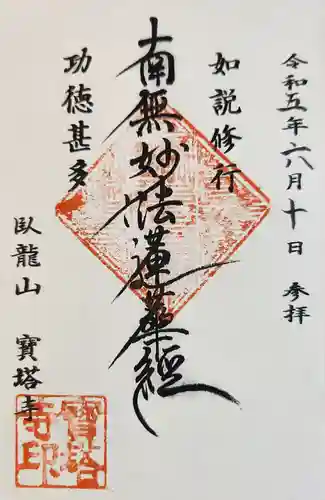 令和五年六月十日 参拝
如説修行
南無妙法蓮華経
功徳甚多
臥龍山 寳塔寺
寳塔寺印